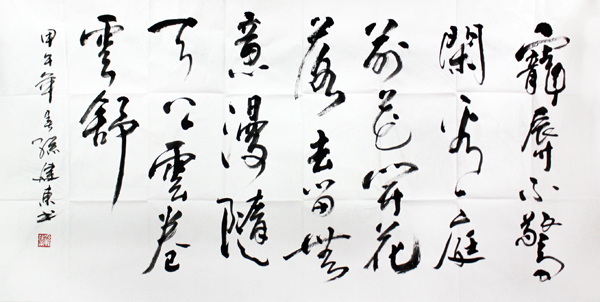 寵辱不驚
閑看庭
前花開花
落去留無
意漫隨
天外雲卷
雲舒
甲午年 孫建東書